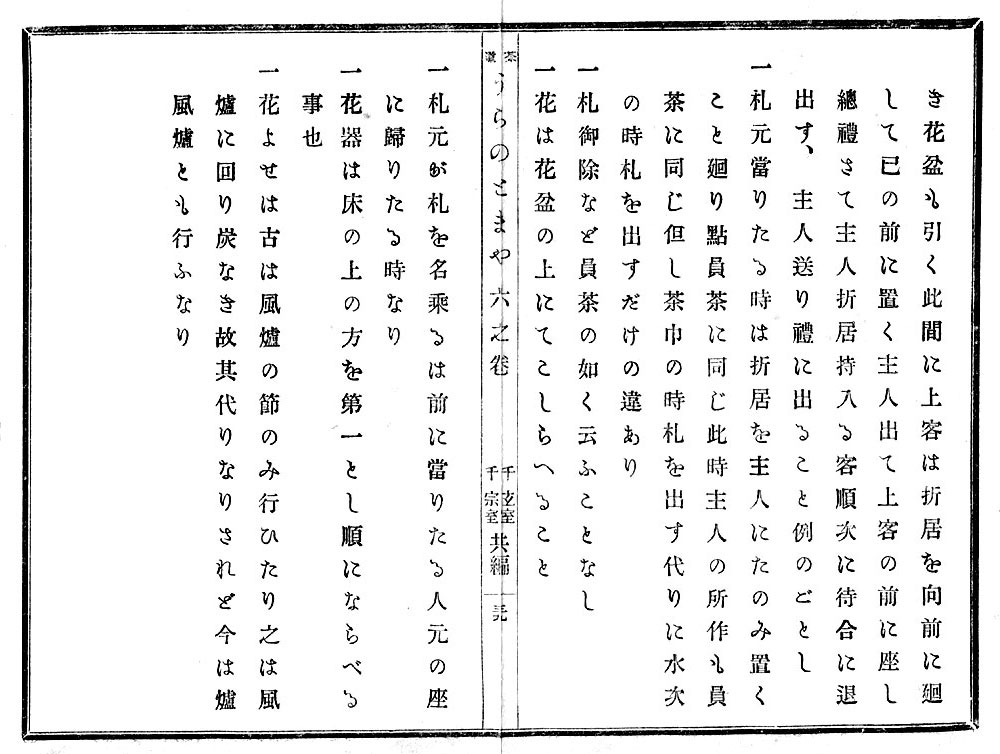 き花盆も引く此間に上客は折居を向前に廻
して已の前に置く主人出て上客の前に座し
總禮さて主人折居持入る客順次に待合に退
出す、主人送り禮に出ること例のごとし
一札元當りたる時は折居を主人にたのみ置く
こと廻り點員茶に同じ此時主人の所作も員
茶に同じ但し茶巾の時札を出す代りに水次
の時札を出すだけの違あり
一札御除など員茶の如く云ふことなし
一花は花盆の上にてこしらへること
茶道
うらのとまや六之卷
千玄室
千宗室
共編
一札元が札を名乘るは前に當りたる人元の座
に歸りたる時なり
一花器は床の上の方を第一とし順にならべる
事也
一花よせは古は風爐の節のみ行ひたり之は風
爐に回り炭なき故其代りなりされど今は爐
風爐とも行ふなり